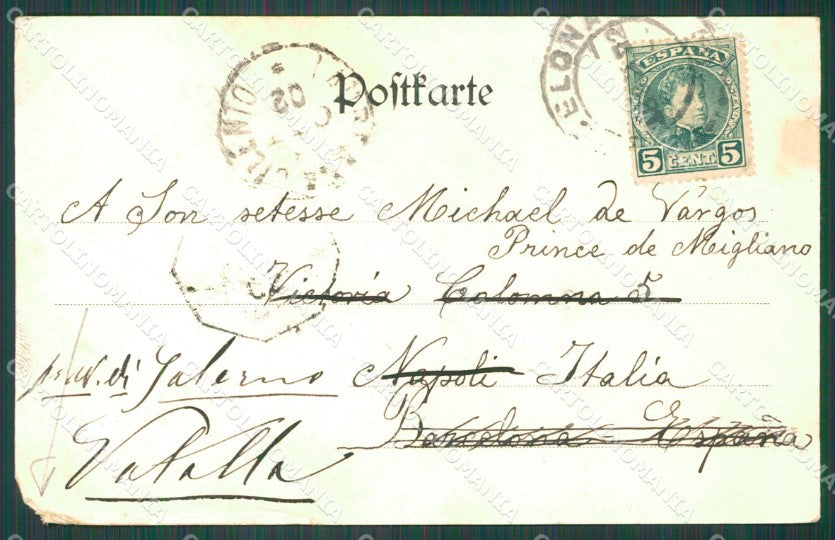 Postkarte
ESPAÑA
5 CENT. 5
A Son setesse Michael de Vargos
Prince de Migliano
Victoria Colomna 5
prov. di Salerno Napoli - Italia
Vatolla Barcelona - España
ELONA
CILENTO
02
CARTOLINOMANIA